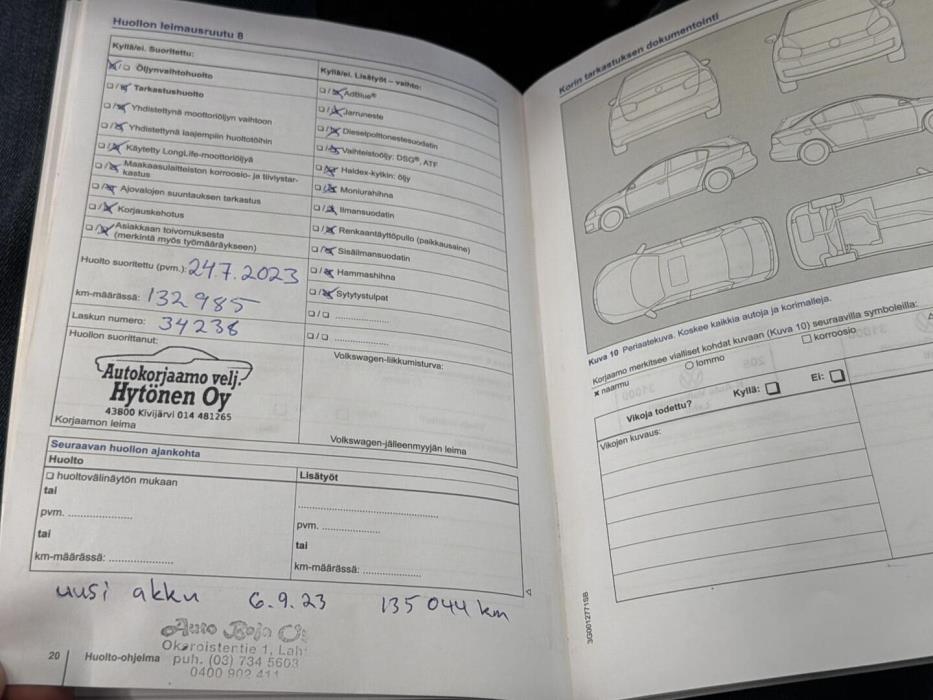 Huollon leimausruutu 8
Kyllä/ei. Suoritettu:
Öljynvaihtohuolto
Tarkastushuolto
Yhdistettynä moottoriöljyn vaihtoon
Yhdistettynä laajempiin huoltotöihin
Käytetty LongLife-moottoriöljyä
Maakaasulaitteiston korroosio- ja tiiviystar-
kastus
Ajovalojen suuntauksen tarkastus
Korjauskehotus
Asiakkaan toivomuksesta
(merkintä myös työmääräykseen)
Kyllä/ei. Lisätyöt – vaihto:
AdBlue®
Jarruneste
Dieselpolttonestesuodatin
Vaihteistoöljy: DSG®, ATF
Haldex-kytkin: öljy
Moniurahihna
Ilmansuodatin
Renkaantäyttöpullo (paikkausaine)
Sisäilmansuodatin
Hammashihna
Sytytystulpat
Huolto suoritettu (pvm.): 24.7.2023
km-määrässä: 132985
Laskun numero: 34238
Huollon suorittanut:
Autokorjaamo velj.
Hytönen Oy
43800 Kivijärvi 014 481265
Korjaamon leima
Volkswagen-liikkumisturva:
Volkswagen-jälleenmyyjän leima
Seuraavan huollon ajankohta
Huolto
huoltovälinäytön mukaan
tai
pvm. ....................
tai
km-määrässä: ....................
Lisätyöt
pvm. ..................
tai
km-määrässä: ..................
uusi akku 6.9.23 135 044 km
Okeroistentie 1,
puh. (03) 734 5603
0400 902 411
20 Huolto-ohjelma
Korin tarkastuksen dokumentointi
Kuva 10 Periaatekuva. Koskee kaikkia autoja ja korimalleja.
Korjaamo merkitsee vialliset kohdat kuvaan (Kuva 10) seuraavilla symboleilla:
x naarmu
lommo
korroosio
Vikoja todettu? Kyllä: Ei:
Vikojen kuvaus:
3G0012771SB